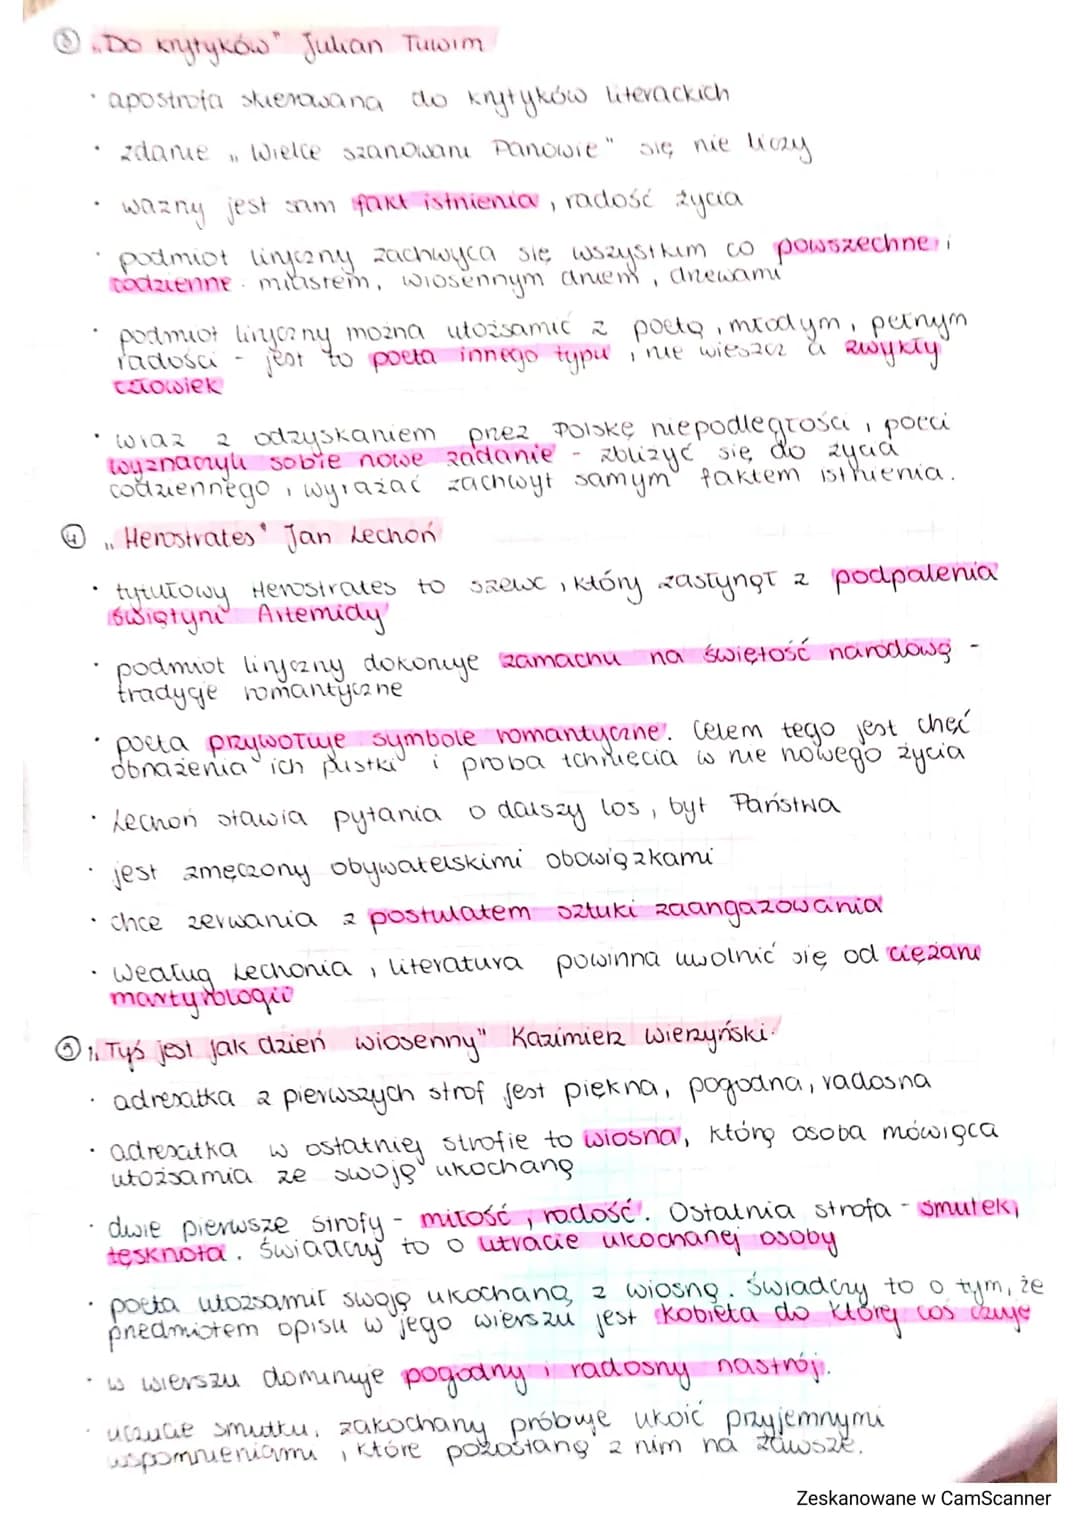 ③ „Do krytyków" Julian Tuwim
· apostrofa skierowana do krytyków literackich
· zdanie „Wielce szanowani Panowie" się nie liczy
· ważny jest sam fakt istnienia, radość życia
· podmiot liryczny zachwyca się wszystkim co powszechne i
codzienne - miastem, wiosennym dniem, drzewami
· podmiot liryczny można utożsamić z poetą, młodym, pełnym
radości - jest to poeta innego typu, nie wieszcz a zwykły
człowiek
· wraz z odzyskaniem przez Polskę niepodległości, poeci
wyznaczyli sobie nowe zadanie - zbliżyć się do życia
codziennego, wyrażać zachwyt samym faktem istnienia.
④ „Herostrates" Jan Lechoń
· tytułowy Herostrates to szewc, który zasłynął z podpalenia
świątyni Artemidy
· podmiot liryczny dokonuje zamachu na świętość narodową -
tradycje romantyczne
· poeta przywołuje symbole romantyczne. Celem tego jest chęć
obnażenia ich pustki i próba tchnięcia w nie nowego życia
· Lechoń stawia pytania o dalszy los, byt Państwa
· jest zmęczony obywatelskimi obowiązkami
· chce zerwania z postulatem sztuki zaangażowania
· według Lechonia, literatura powinna uwolnić się od ciężaru
martyrologii
⑤ „Tyś jest jak dzień wiosenny" Kazimierz Wierzyński
· adresatka z pierwszych strof jest piękna, pogodna, radosna
· adresatka w ostatniej strofie to wiosna, którą osoba mówiąca
utożsamia ze swoją ukochaną
· dwie pierwsze strofy - miłość, radość. Ostatnia strofa - smutek,
tęsknota. Świadczy to o utracie ukochanej osoby
· poeta utożsamił swoją ukochaną z wiosną. Świadczy to o tym, że
przedmiotem opisu w jego wierszu jest kobieta do której coś czuje
· w wierszu dominuje pogodny i radosny nastrój.
· uczucie smutku, zakochany próbuje ukoić przyjemnymi
wspomnieniami, które pozostaną z nim na zawsze.
Zeskanowane w CamScanner